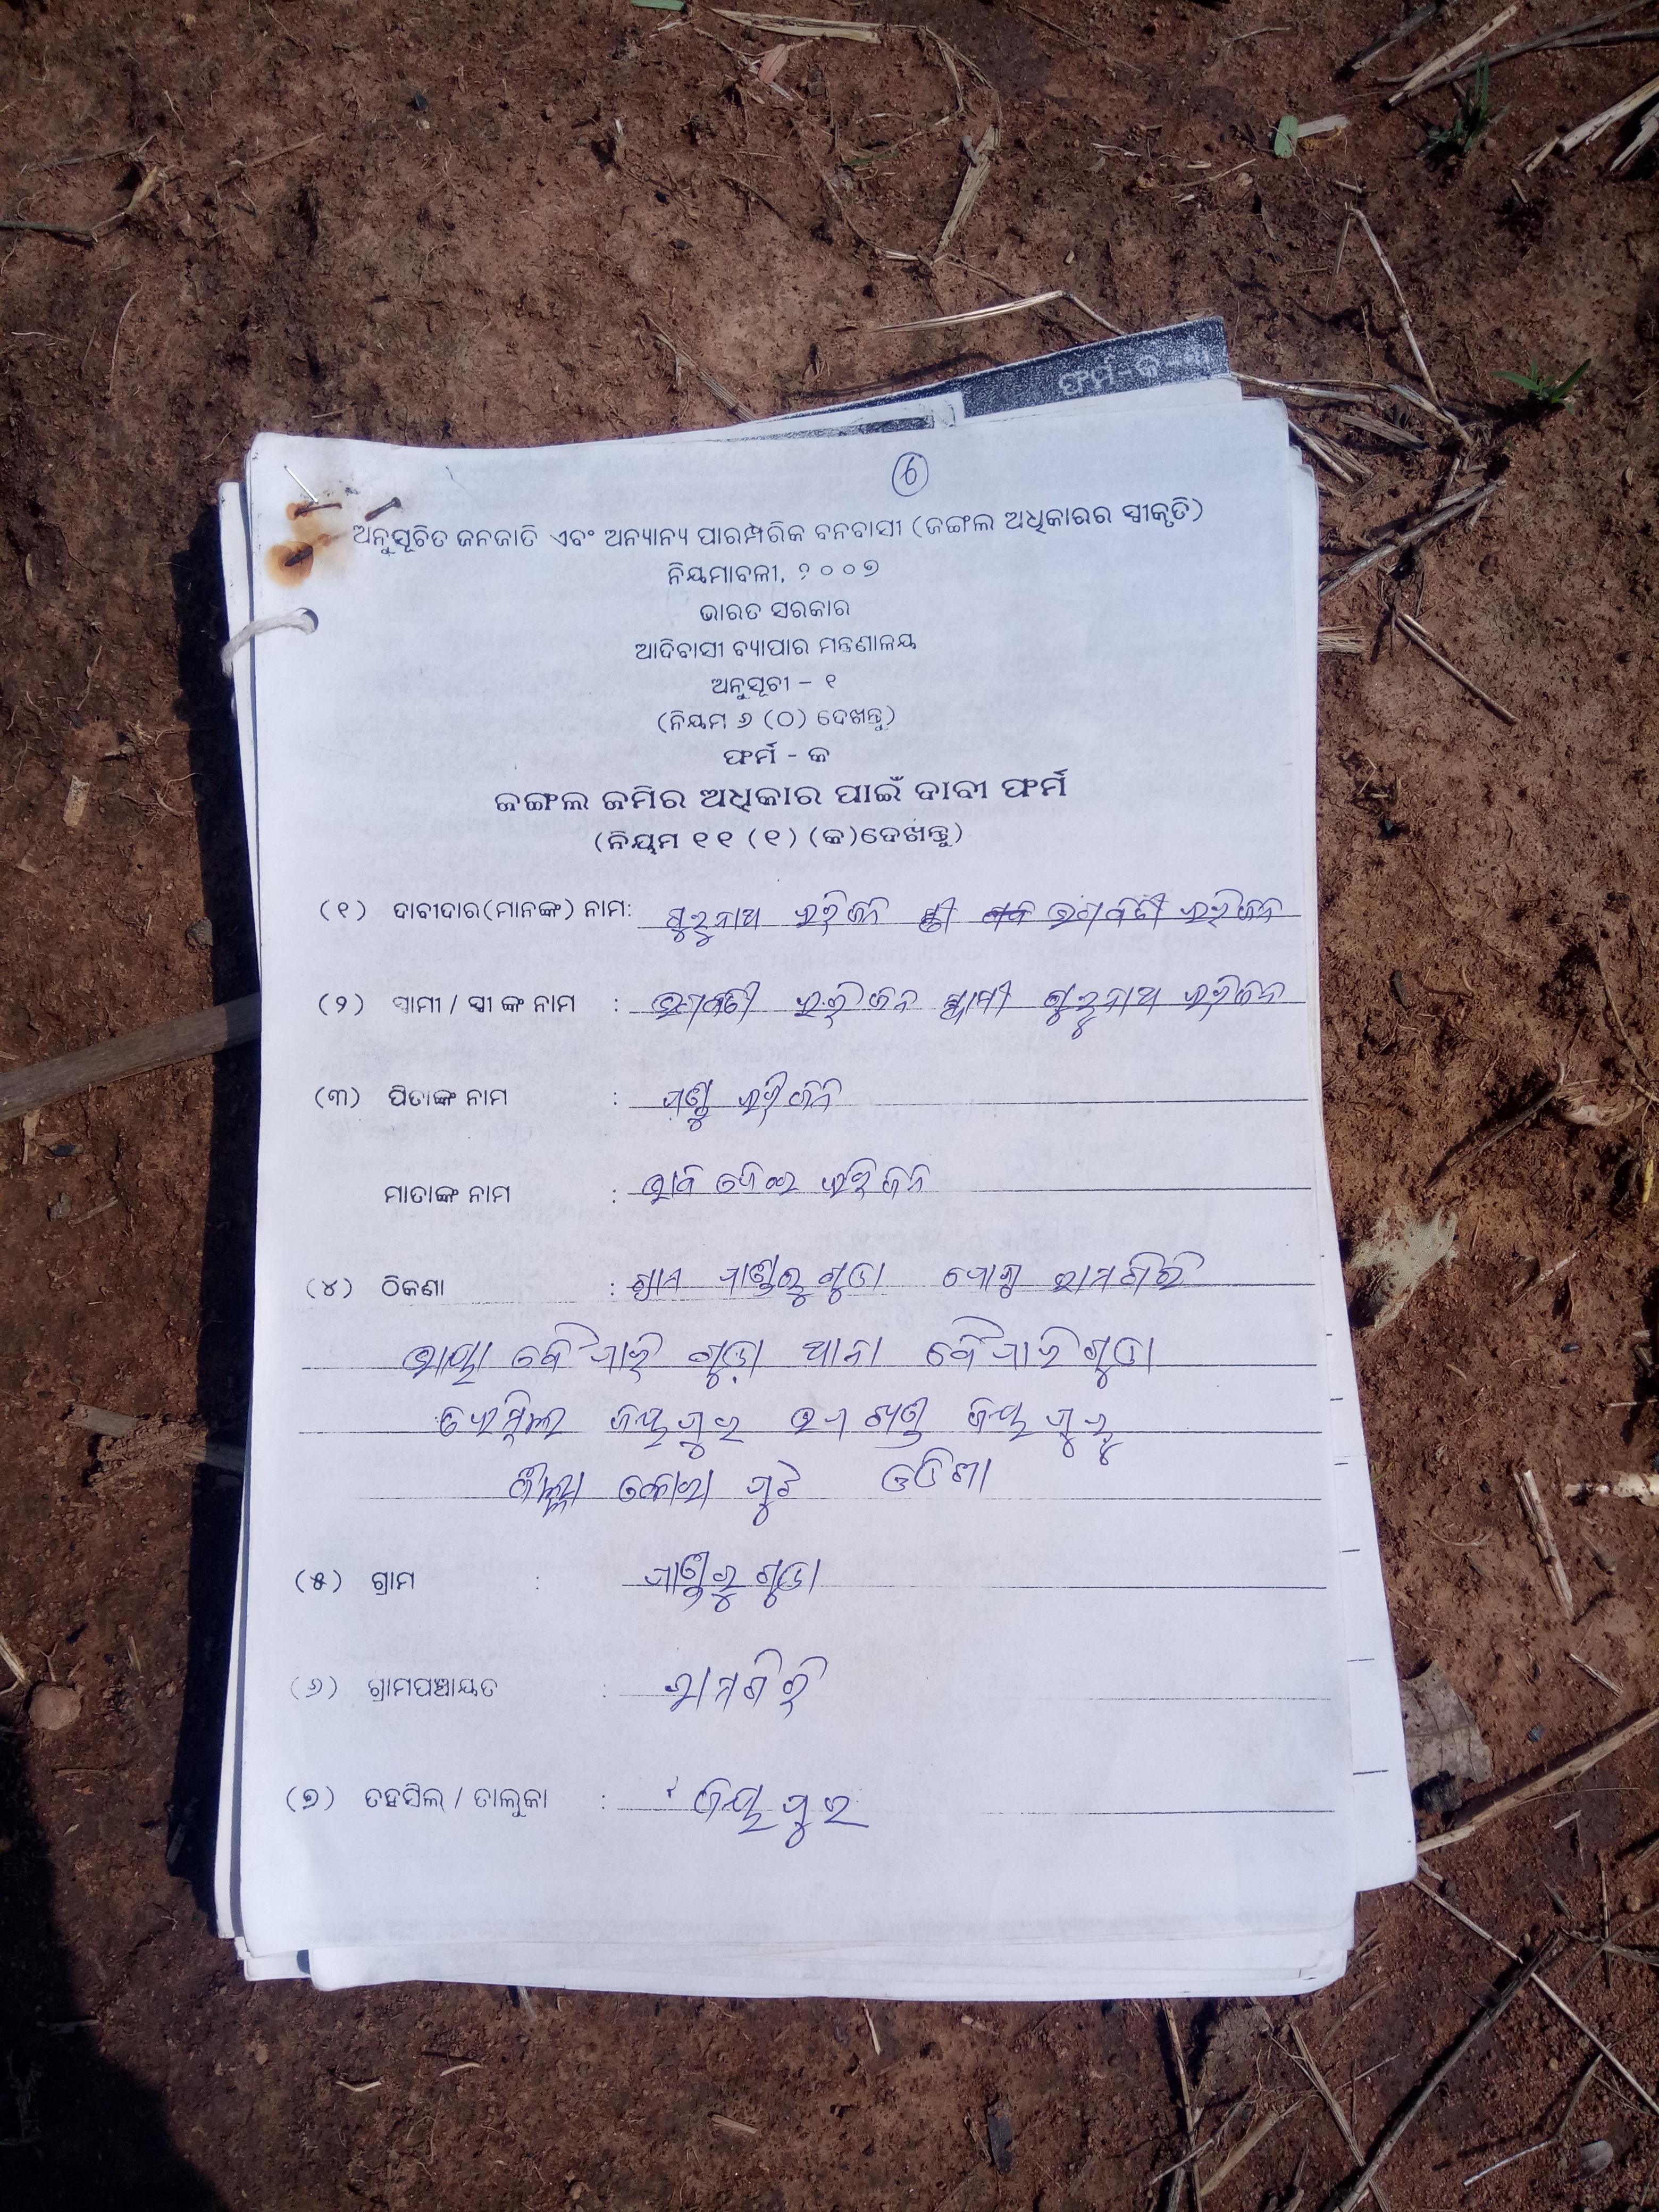 ଫର୍ମ-କ
6
ଅନୁସୂଚିତ ଜନଜାତି ଏବଂ ଅନ୍ୟାନ୍ୟ ପାରମ୍ପରିକ ବନବାସୀ (ଜଙ୍ଗଲ ଅଧିକାରର ସ୍ୱୀକୃତି)
ନିୟମାବଳୀ, ୨୦୦୭
ଭାରତ ସରକାର
ଆଦିବାସୀ ବ୍ୟାପାର ମନ୍ତ୍ରଣାଳୟ
ଅନୁସୂଚୀ – ୧
(ନିୟମ ୬ (ଠ) ଦେଖନ୍ତୁ)
ଫର୍ମ - କ
ଜଙ୍ଗଲ ଜମିର ଅଧିକାର ପାଇଁ ଦାବୀ ଫର୍ମ
(ନିୟମ ୧୧ (୧) (କ)ଦେଖନ୍ତୁ)
(୧) ଦାବୀଦାର(ମାନଙ୍କ) ନାମ: ଗୁରୁନାଥ ହରିଜନ ସ୍ତ୍ରୀ ଭଗବତୀ ହରିଜନ
(୨) ସ୍ୱାମୀ / ସ୍ତ୍ରୀ ଙ୍କ ନାମ : ଭଗବତୀ ହରିଜନ ସ୍ୱାମୀ ଗୁରୁନାଥ ହରିଜନ
(୩) ପିତାଙ୍କ ନାମ : ହରିଜନ
ମାତାଙ୍କ ନାମ : ହରିଜନ
(୪) ଠିକଣା : ଗ୍ରାମ ପାଣ୍ଡରୁଗୁଡା ପୋଷ୍ଟ ରାମଗିରି
ଭାୟା ବୈପାରିଗୁଡ଼ା ଥାନା ବୈପାରିଗୁଡା
ତହସିଲ ଜୟପୁର ଉପଖଣ୍ଡ ଜୟପୁର
ଜିଲ୍ଲା କୋରାପୁଟ ଓଡିଶା
(୫) ଗ୍ରାମ : ପାଣ୍ଡରୁଗୁଡା
(୬) ଗ୍ରାମପଞ୍ଚାୟତ : ରାମଗିରି
(୭) ତହସିଲ୍ / ତାଲୁକା : ଜୟପୁର